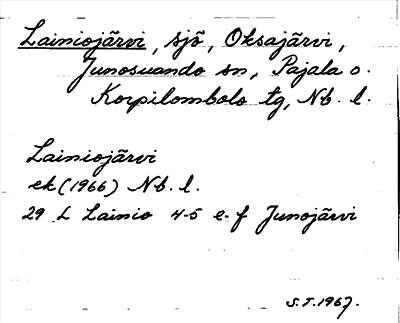 Lainiojärvi, sjö, Oksajärvi,
Junosuando sn, Pajala o.
Korpilombolo tg, Nb. l.
Lainiojärvi
ek (1966) Nb. l.
29 L Lainio 4-5 e-f Junojärvi
S.T. 1967.